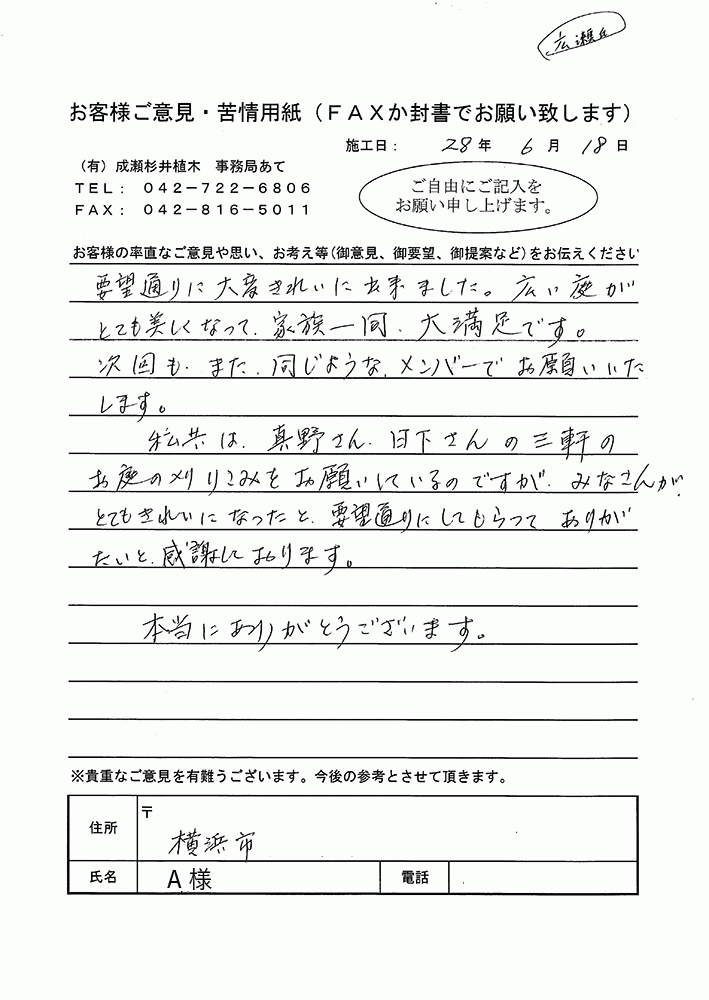 広瀬氏
お客様ご意見・苦情用紙（ＦＡＸか封書でお願い致します）
施工日： 28年 6月 18日
（有）成瀬杉井植木　事務局あて
ＴＥＬ： ０４２－７２２－６８０６
ＦＡＸ： ０４２－８１６－５０１１
ご自由にご記入を
お願い申し上げます。
お客様の率直なご意見や思い、お考え等（御意見、御要望、御提案など）をお伝えください
要望通りに大変きれいに出来ました。広い庭が
とても美しくなって、家族一同、大満足です。
次回も、また、同じような、メンバーでお願いいた
します。
私共は、真野さん、日下さんの三軒の
お庭の刈りこみをお願いしているのですが、みなさんが、
とてもきれいになったと、要望通りにしてもらって ありが
たいと、感謝しております。
本当にありがとうございます。
※貴重なご意見を有難うございます。今後の参考とさせて頂きます。
住所 〒
横浜市
氏名 Ａ様 電話